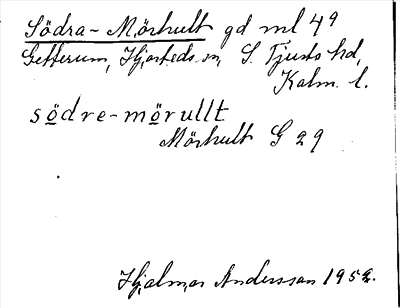 Södra-Mörhult gd ml 4⁹
Getterum, Hjorteds sn, S. Tjusts hd,
Kalm. l.
södre-mörullt
Mörhult G 29
Hjalmar Andersson 1952.